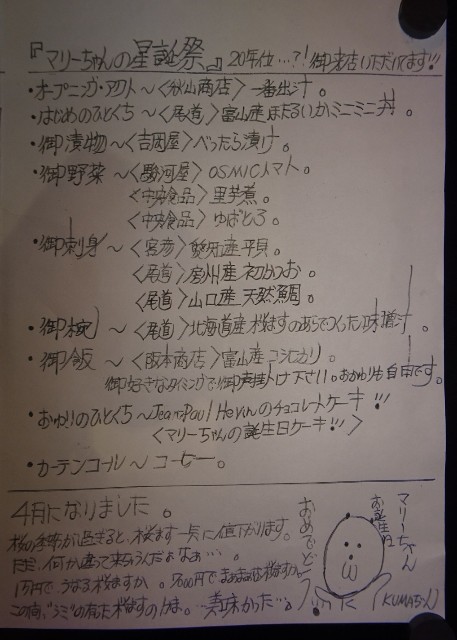 『マリーちゃんの星誕祭』20年位…?! 御来店いただいてます!!
・オープニング・アクト〜〈秋山商店〉一番出汁。
・はじめのひとくち〜〈尾道〉富山産ほたるいかミニミニ丼。
・御漬物〜〈吉岡屋〉べったら漬け。
・御野菜〜〈駿河屋〉OSMICトマト。
〈中央食品〉里芋煮。
〈中央食品〉ゆばとろ。
・御刺身〜〈宮彦〉愛知産平貝。
〈尾道〉房州産初かつお。
〈尾道〉山口産天然鯛。
・御椀〜〈尾道〉北海道産桜ますのあらでつくった味噌汁。
・御飯〜〈阪本商店〉富山産コシヒカリ。
御好きなタイミングで御声掛け下さい。おかわりも自由です。
・おわりのひとくち〜Jean-Paul Hevinのチョコレートケーキ!!!
〈マリーちゃんの誕生日ケーキ!!!〉
・カーテンコール〜コーヒー。
4月になりました。
桜の季節が過ぎると、桜ます一気に値下がります。
ただ、何か違って来ちゃうんだよなぁ…。
1万円でうなる桜ますか。
この前、
桜ますの
…美味かった…。
マリーちゃん
お誕生日
おめでとう
(KUMAちゃん)